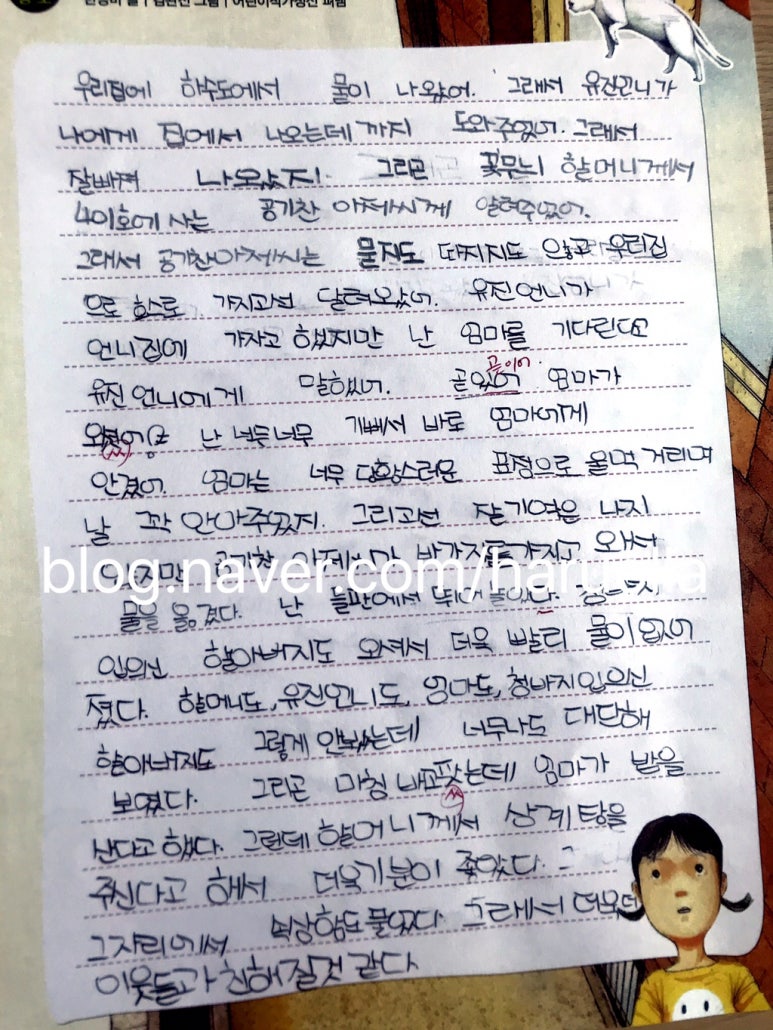 우리집에 하수도에서 물이 나왔어. 그래서 유진언니가
나에게 집에서 나오는데 까지 도와주었어. 그래서
잘빠져 나왔지! 그리곤 꽃무늬 할머니께서
401호에 사는 공기찬 아저씨께 알려주었어.
그래서 공기찬아저씨는 묻지도 따지지도 않고 우리집
으로 호스로 가지고선 달려왔어. 유진언니가
언니집에 가자고 했지만 난 엄마를 기다린다고
유진언니에게 말했어. 곧있어 엄마가
곧이어
난 너무너무 기뻐서 바로 엄마에게
안겼어. 엄마는 너무 당황스러운 표정으로 울먹 거리며
날 꼭 안아주었지. 그리고선 잘 기억은 나지
공기찬 아저씨가 바가지를가지고 와서
물을 옮겼다. 난 들판에서
입의신 할아버지도 오셔서 더욱 빨리 물이 없어
졌다. 할머니도, 유진언니도, 엄마도, 청바지입의신
할아버지도 그렇게 안봤는데 너무나도 대단해
보였다. 그리곤 마침 배고팟는데 엄마가 밥을
산다고 했다. 그런데 할머니께서 삼계탕을
주신다고 해서 더욱기분이 좋았다.
그자리에서 속상함도 풀었다. 그래서 더욱더
이웃들과 친해질것 같다.
blog.naver.com/